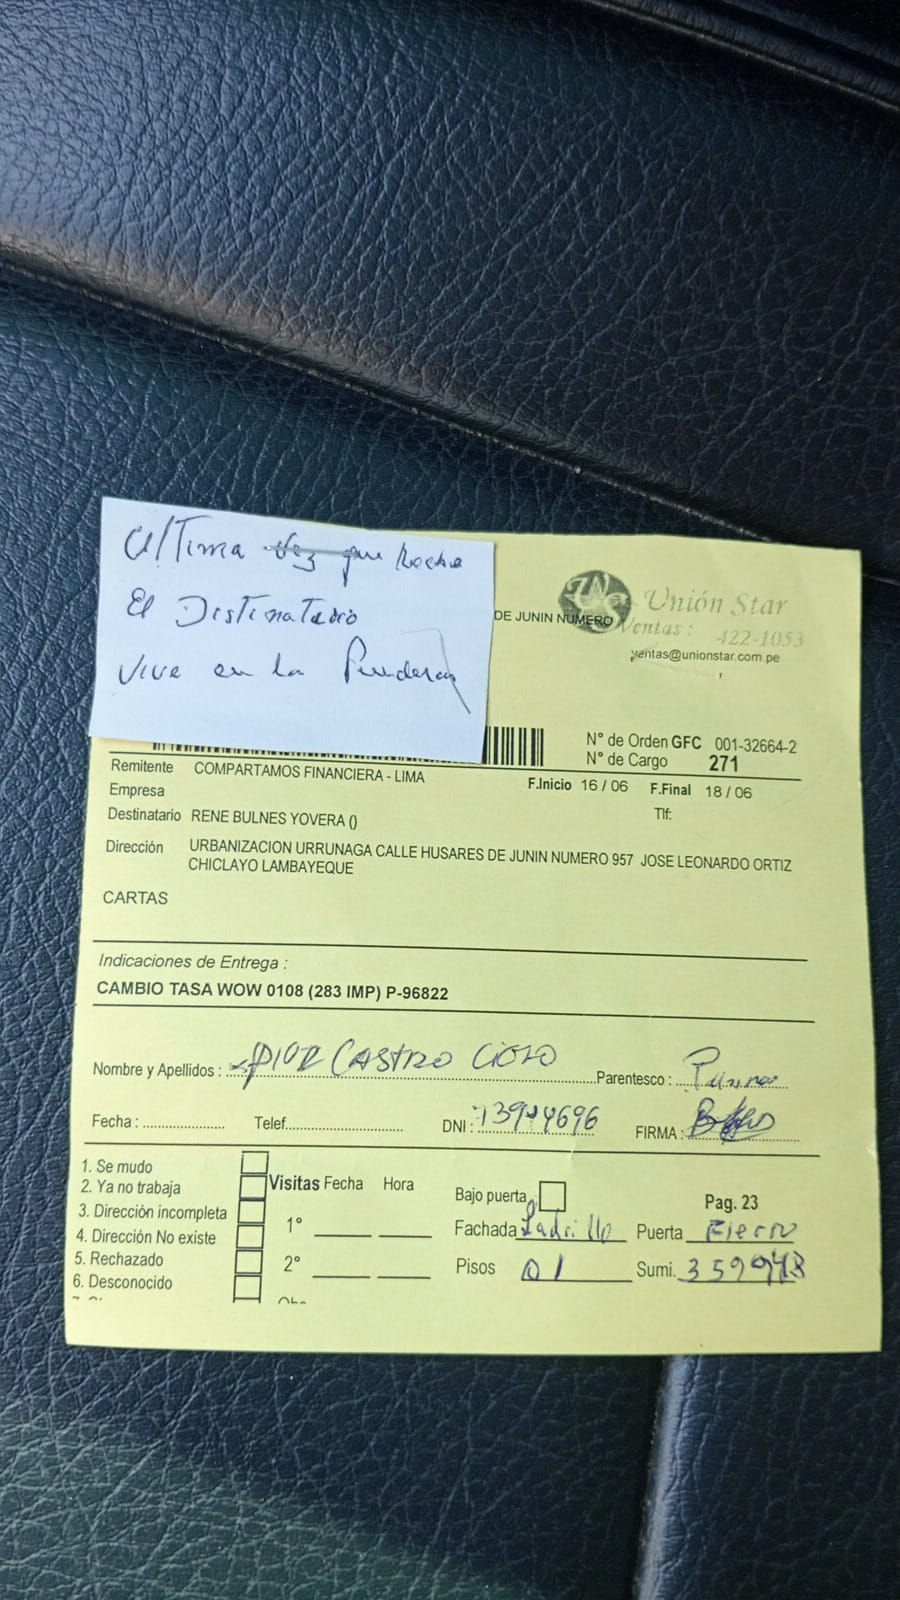 Ultima vez que Recibe
El Distinatario
vive en la
DE JUNIN NUMERO
Unión Star
Ventas : 422-1053
ventas@unionstar.com.pe
N° de Orden GFC 001-32664-2
N° de Cargo 271
Remitente COMPARTAMOS FINANCIERA - LIMA
F.Inicio 16 / 06 F.Final 18 / 06
Empresa
Tlf:
Destinatario RENE BULNES YOVERA ()
Dirección URBANIZACION URRUNAGA CALLE HUSARES DE JUNIN NUMERO 957 JOSE LEONARDO ORTIZ
CHICLAYO LAMBAYEQUE
CARTAS
Indicaciones de Entrega :
CAMBIO TASA WOW 0108 (283 IMP) P-96822
Nombre y Apellidos : CASTRO Parentesco :
Fecha : Telef. DNI : FIRMA :
1. Se mudo
2. Ya no trabaja
3. Dirección incompleta
4. Dirección No existe
5. Rechazado
6. Desconocido
Visitas Fecha Hora
1°
2°
Bajo puerta
Pag. 23
Fachada Ladrillo Puerta Fierro
Pisos 01 Sumi. 359948